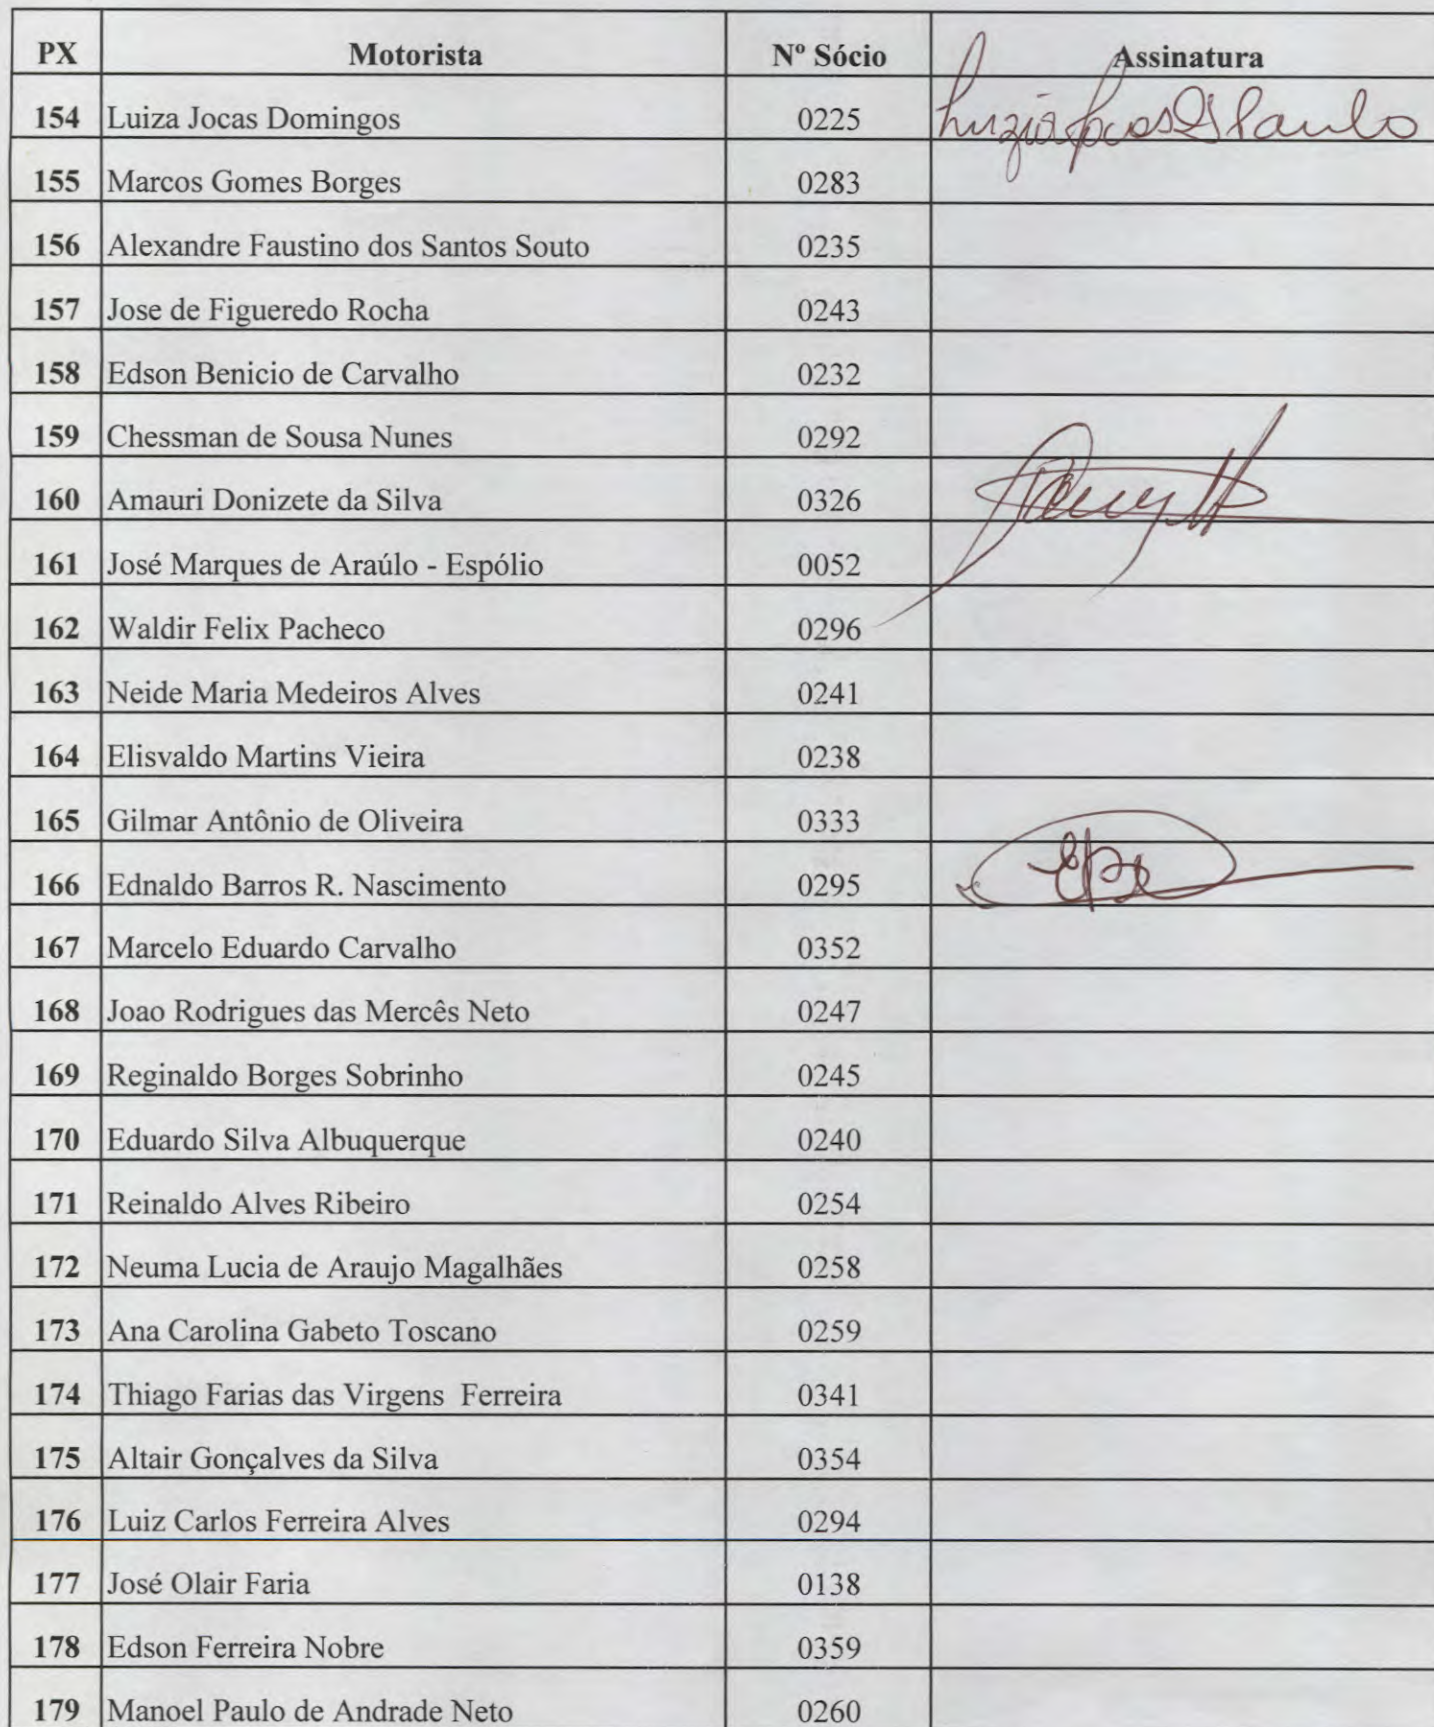 PX Motorista Nº Sócio Assinatura
154 Luiza Jocas Domingos 0225 Luzia Jocas Paulo
155 Marcos Gomes Borges 0283
156 Alexandre Faustino dos Santos Souto 0235
157 Jose de Figueredo Rocha 0243
158 Edson Benicio de Carvalho 0232
159 Chessman de Sousa Nunes 0292
160 Amauri Donizete da Silva 0326
161 José Marques de Araúlo - Espólio 0052
162 Waldir Felix Pacheco 0296
163 Neide Maria Medeiros Alves 0241
164 Elisvaldo Martins Vieira 0238
165 Gilmar Antônio de Oliveira 0333
166 Ednaldo Barros R. Nascimento 0295
167 Marcelo Eduardo Carvalho 0352
168 Joao Rodrigues das Mercês Neto 0247
169 Reginaldo Borges Sobrinho 0245
170 Eduardo Silva Albuquerque 0240
171 Reinaldo Alves Ribeiro 0254
172 Neuma Lucia de Araujo Magalhães 0258
173 Ana Carolina Gabeto Toscano 0259
174 Thiago Farias das Virgens Ferreira 0341
175 Altair Gonçalves da Silva 0354
176 Luiz Carlos Ferreira Alves 0294
177 José Olair Faria 0138
178 Edson Ferreira Nobre 0359
179 Manoel Paulo de Andrade Neto 0260